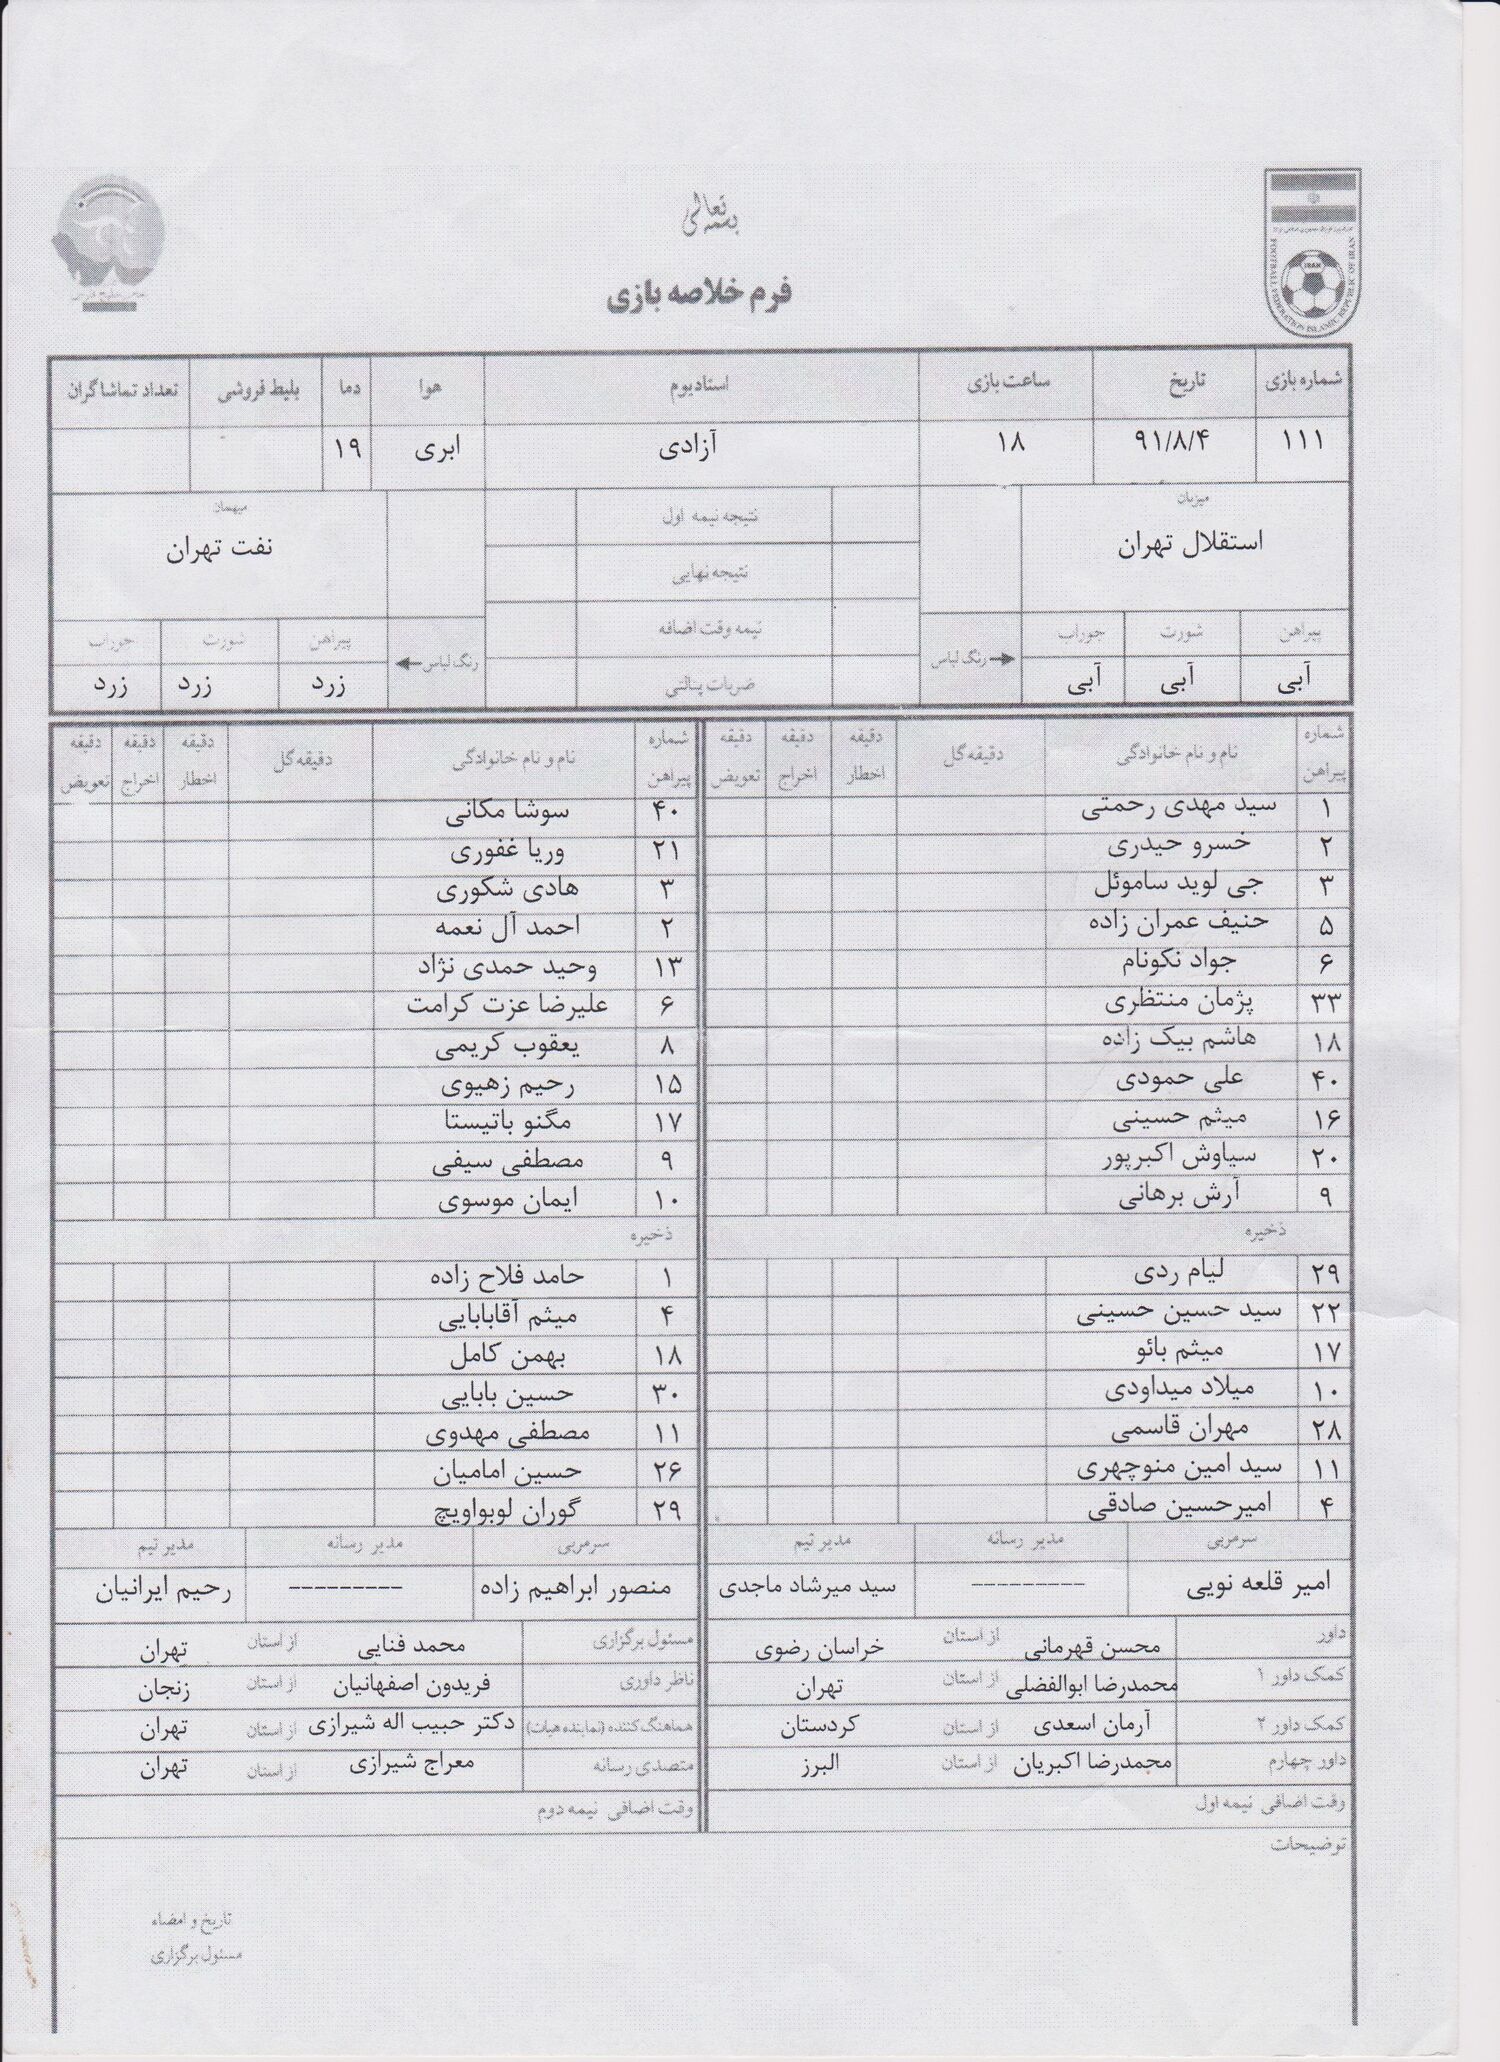 بسمه تعالی
فرم خلاصه بازی
FOOTBALL FEDERATION ISLAMIC REPUBLIC OF IRAN
IRAN
شماره بازی تاریخ ساعت بازی استادیوم هوا دما بلیط فروشی تعداد تماشاگران
۱۱۱ ۹۱/۸/۴ ۱۸ آزادی ابری ۱۹
میزبان نتیجه نیمه اول میهمان
استقلال تهران نفت تهران
نتیجه نهایی
پیراهن شورت جوراب نیمه وقت اضافه پیراهن شورت جوراب
رنگ لباس رنگ لباس
آبی آبی آبی ضربات پنالتی زرد زرد زرد
شماره پیراهن نام و نام خانوادگی دقیقه گل دقیقه اخطار دقیقه اخراج دقیقه تعویض شماره پیراهن نام و نام خانوادگی دقیقه گل دقیقه اخطار دقیقه اخراج دقیقه تعویض
۱ سید مهدی رحمتی ۴۰ سوشا مکانی
۲ خسرو حیدری ۲۱ وریا غفوری
۳ جی لوید ساموئل ۳ هادی شکوری
۵ حنیف عمران زاده ۲ احمد آل نعمه
۶ جواد نکونام ۱۳ وحید حمدی نژاد
۳۳ پژمان منتظری ۶ علیرضا عزت کرامت
۱۸ هاشم بیک زاده ۸ یعقوب کریمی
۴۰ علی حمودی ۱۵ رحیم زهیوی
۱۶ میثم حسینی ۱۷ مگنو باتیستا
۲۰ سیاوش اکبرپور ۹ مصطفی سیفی
۹ آرش برهانی ۱۰ ایمان موسوی
ذخیره ذخیره
۲۹ لیام ردی ۱ حامد فلاح زاده
۲۲ سید حسین حسینی ۴ میثم آقابابایی
۱۷ میثم بائو ۱۸ بهمن کامل
۱۰ میلاد میداودی ۳۰ حسین بابایی
۲۸ مهران قاسمی ۱۱ مصطفی مهدوی
۱۱ سید امین منوچهری ۲۶ حسین امامیان
۴ امیرحسین صادقی ۲۹ گوران لوبواویچ
سرمربی مدیر رسانه مدیر تیم سرمربی مدیر رسانه مدیر تیم
امیر قلعه نویی --------- سید میرشاد ماجدی منصور ابراهیم زاده --------- رحیم ایرانیان
داور محسن قهرمانی از استان خراسان رضوی مسئول برگزاری محمد فنایی از استان تهران
کمک داور ۱ محمدرضا ابوالفضلی از استان تهران ناظر داوری فریدون اصفهانیان از استان زنجان
کمک داور ۲ آرمان اسعدی از استان کردستان هماهنگ کننده (نماینده هیات) دکتر حبیب اله شیرازی از استان تهران
داور چهارم محمدرضا اکبریان از استان البرز متصدی رسانه معراج شیرازی از استان تهران
وقت اضافی نیمه اول وقت اضافی نیمه دوم
توضیحات
تاریخ و امضاء
مسئول برگزاری